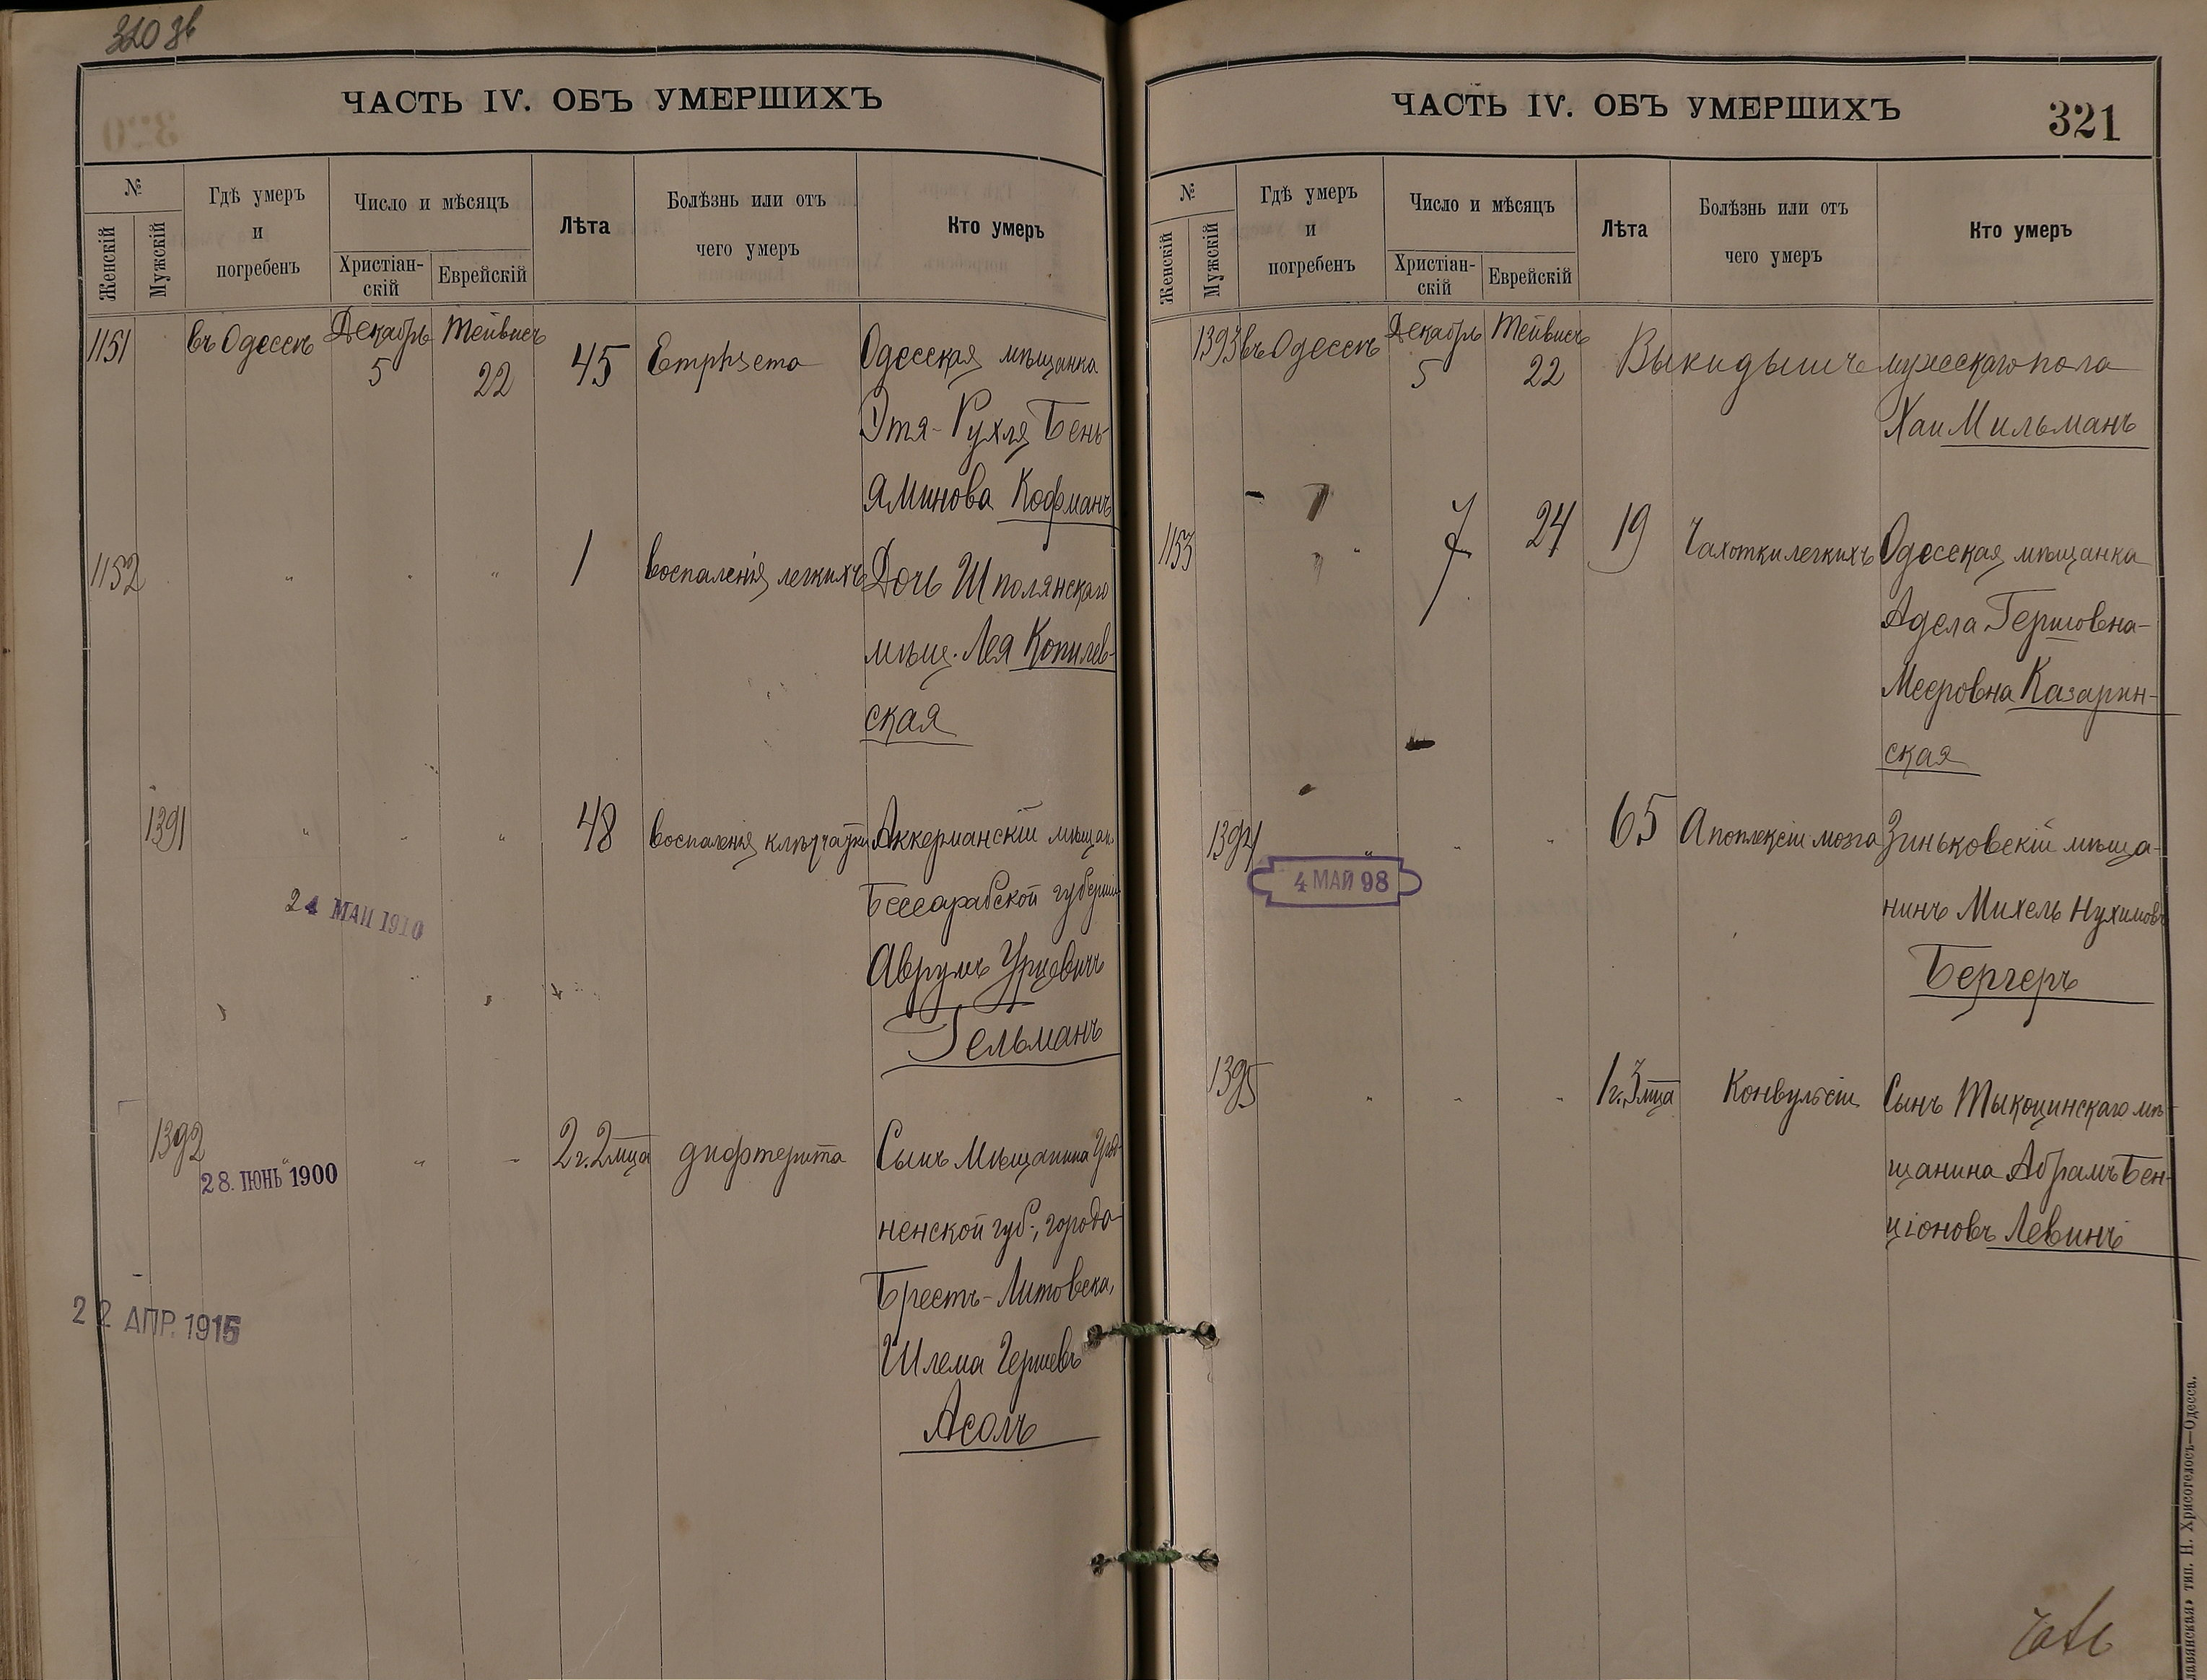 320 об
ЧАСТЬ IV. ОБЪ УМЕРШИХЪ
№
Женскій
Мужскій
Гдѣ умеръ
и
погребенъ
Число и мѣсяцъ
Христіан-
скій
Еврейскій
Лѣта
Болѣзнь или отъ
чего умеръ
Кто умеръ
1151 въ Одессѣ Декабрь 5 Тейвисъ 22 45 Emphsema Одесская мѣщанка
Этя-Рухля Бень-
яминова Кофманъ
1152 " " " 1 воспаленія легкихъ Дочь Шполянскаго
мѣщ. Лея Копилев-
ская
1391 " " " 48 воспаленія клѣтчатки Аккерманскій мѣщан.
Бессарабской губерніи
Аврумъ
Гельманъ
24 МАЙ 1910
1392 " " " 2 г. 2 мца дифтерита Сынъ мѣщанина Грод-
ненской губ., города
Брестъ-Литовска,
Шлема Гершевъ
Асолъ
28. ІЮНЬ 1900
22 АПР. 1915
ЧАСТЬ IV. ОБЪ УМЕРШИХЪ
321
№
Женскій
Мужскій
Гдѣ умеръ
и
погребенъ
Число и мѣсяцъ
Христіан-
скій
Еврейскій
Лѣта
Болѣзнь или отъ
чего умеръ
Кто умеръ
1393 въ Одессѣ Декабрь 5 Тейвисъ 22 Выкидышъ мужескаго пола
Хаи Мильманъ
1153 " " 7 24 19 Чахотки легкихъ Одесская мѣщанка
Адела Гершовна-
Мееровна Казарин-
ская
1394 " " " 65 Апоплексіи мозга Зиньковскій мѣща-
нинъ Михель Нухимовъ
Бергеръ
4 МАЙ 98
1395 " " " 1 г. 3 мца Конвульсіи Сынъ Тыкоцинскаго мѣ-
щанина Абрамъ Бен-
ціоновъ Левинъ
тип. Н. Хрисогелосъ—Одесса.